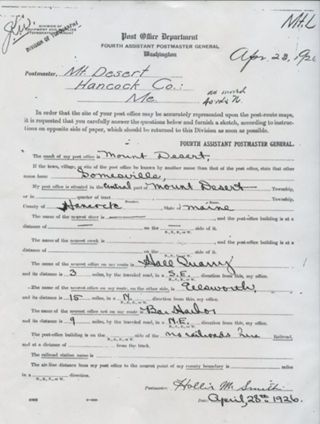 DIVISION OF
Mt.L
DIVISION OF TOPOGRAPHY
Post Office Department
FOURTH ASSISTANT POSTMASTER GENERAL
Washington
Apr 28, 1926
Postmaster,
Mt. Desert
Hancock Co.:
Me.
In order that the site of your post office may be accurately represented upon the post-route maps,
it is requested that you carefully answer the questions below and furnish a sketch, according to instruc-
tions on opposite side of paper, which should be returned to this Division as soon as possible.
FOURTH ASSISTANT POSTMASTER GENERAL.
The name of my post office is Mount Desert.
If the town, village, or site of the post office be known by another name than that of the post office, state that other
name here: Somesville.
My post office is situated in the Central part of Mount Desert Township,
or in quarter of tract Township,
County of Hancock, State of Maine
The name of the nearest river is and the post-office building is at a
distance of on the side of it.
The name of the nearest creek is and the post-office building is at a
distance of on the side of it.
The name of the nearest office on my route is Hall Quarry
and its distance is 3 miles, by the traveled road, in a S.E. direction from this, my office.
The name of the nearest office on my route, on the other side, is Ellsworth,
and its distance is 15 miles, in N. direction from this, my office.
The name of the nearest office not on my route is Bar Harbor
and its distance is 9 miles, by the traveled road, in a N.E. direction from this, my office.
The post-office building is on the side of the no railroads here Railroad,
and at a distance of from the track.
The railroad station name is
The air-line distance from my post office to the nearest point of my county boundary is miles
in a direction.
Postmaster: Hollis M. Smith
Date: April 28th 1926.